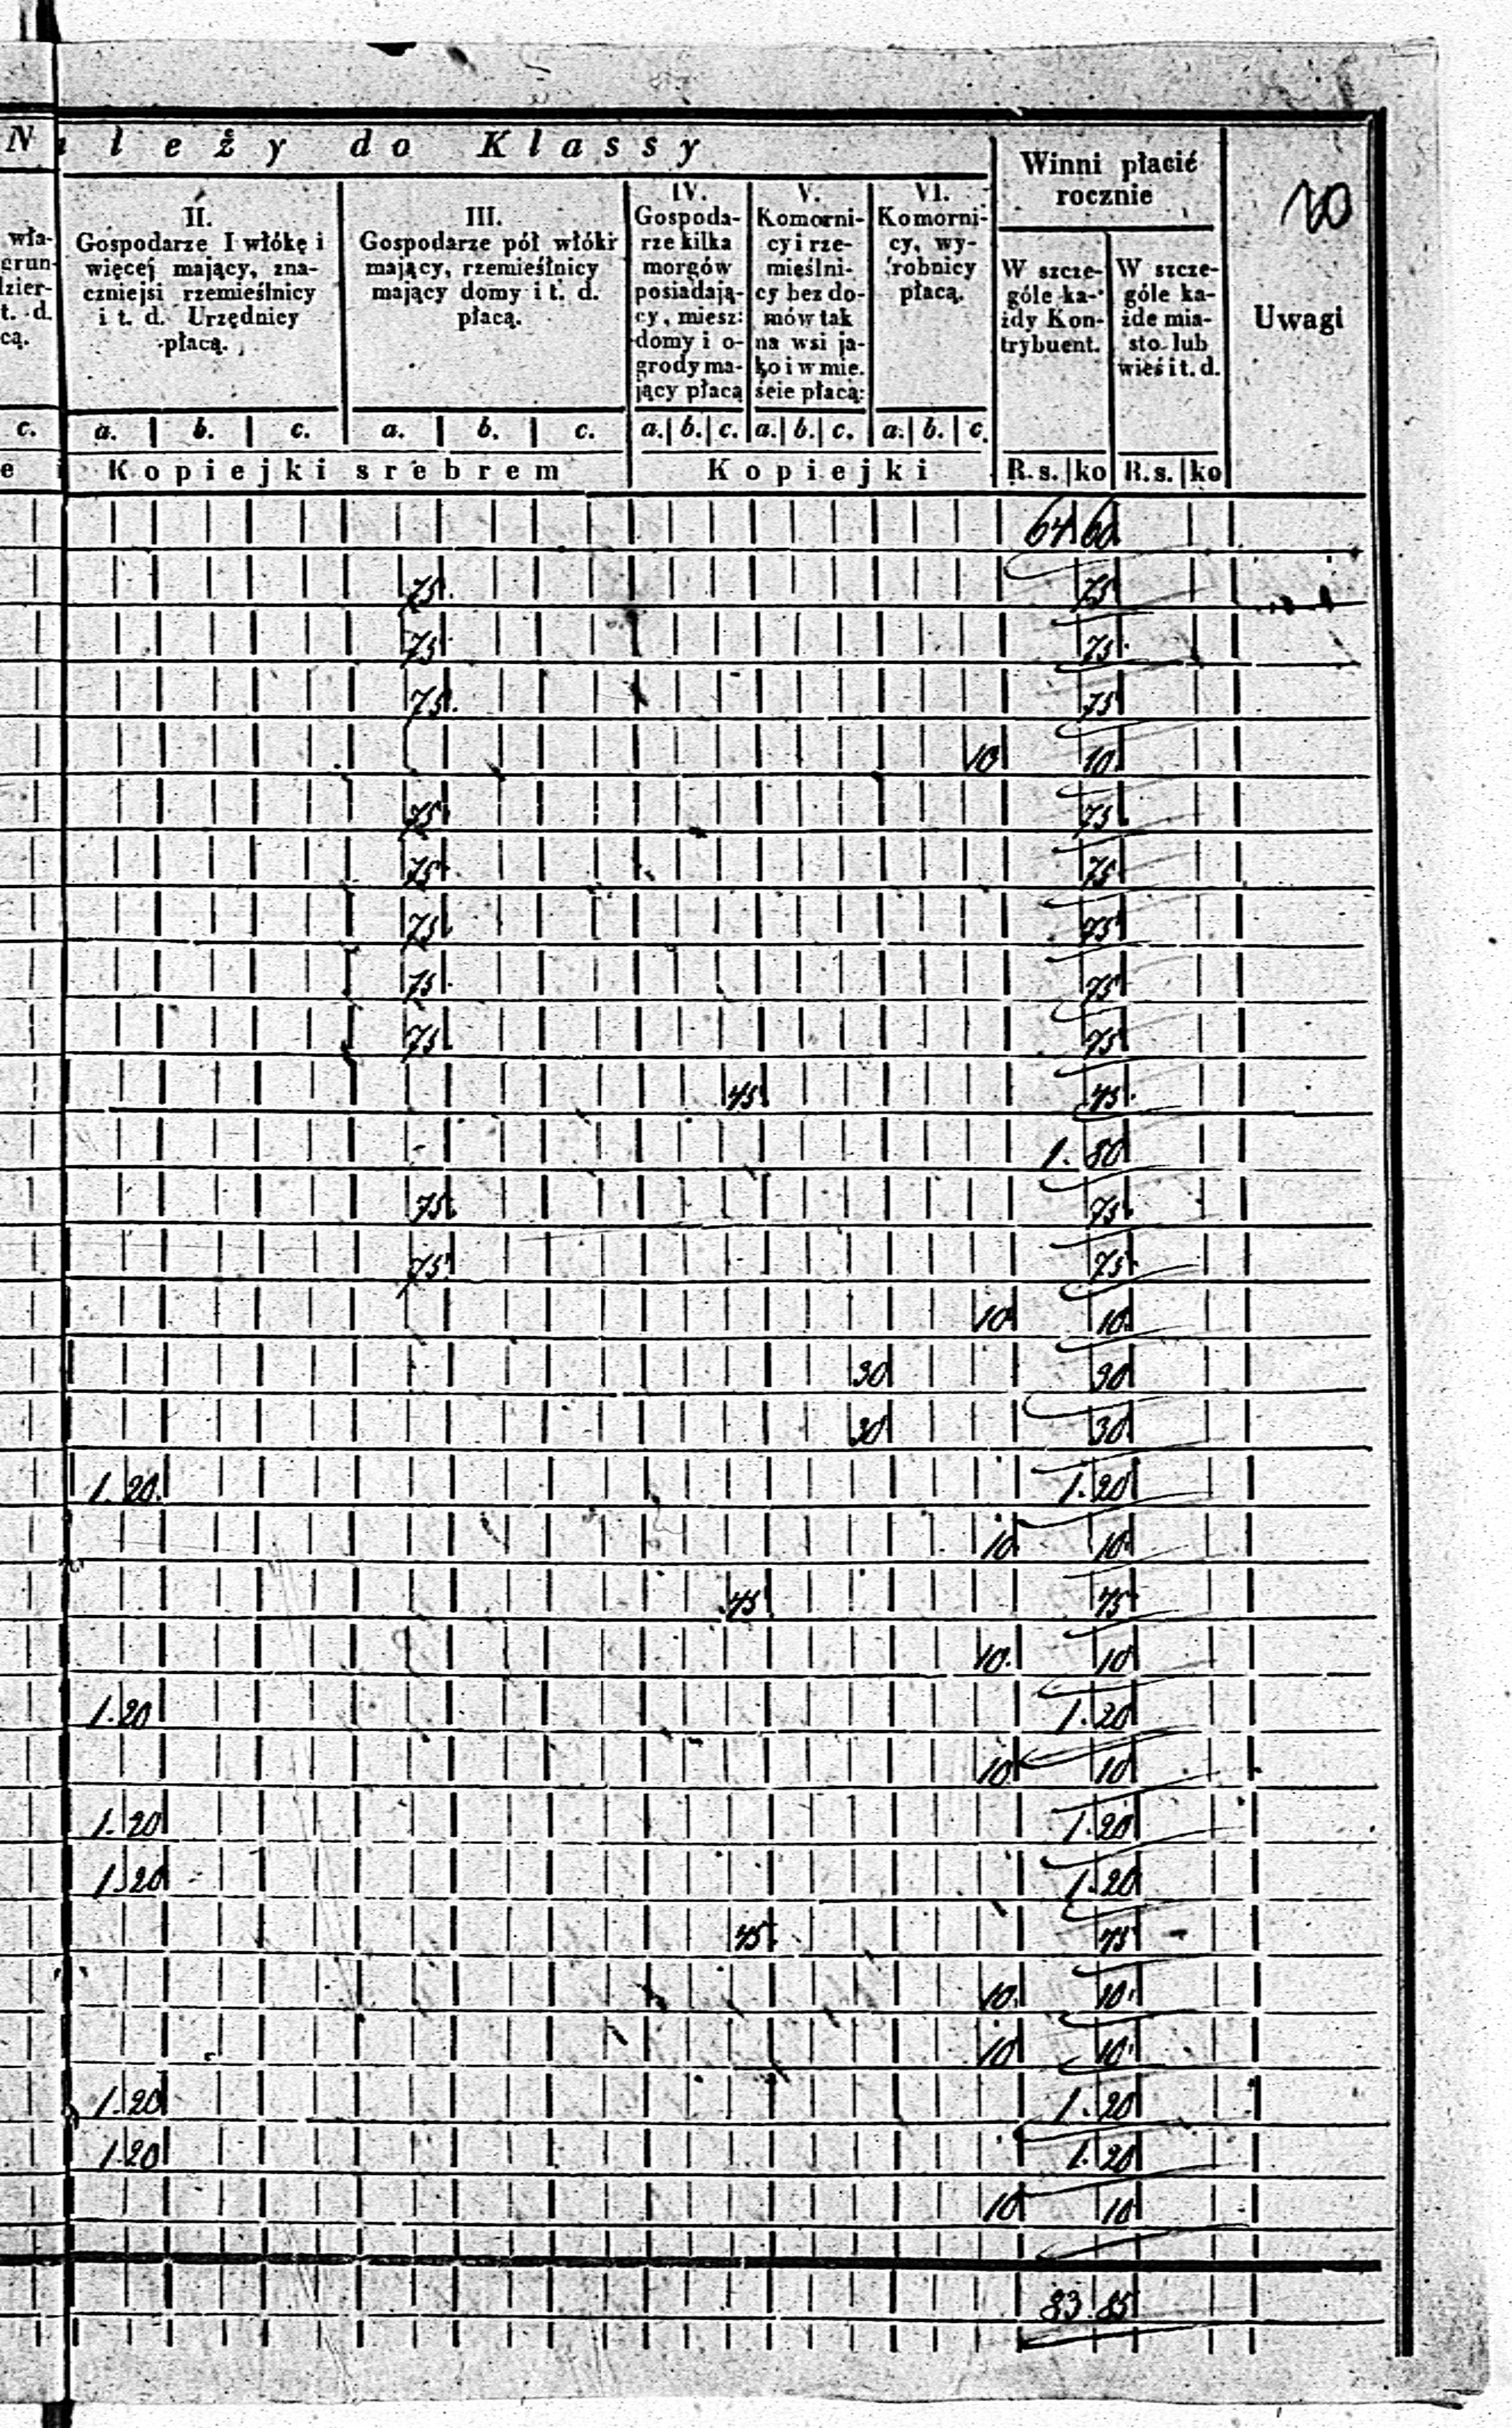 N a l e ż y d o K l a s s y
Winni płacić
rocznie
20
wła-
grun-
dzier-
t. d.
cą.
II.
Gospodarze I włókę i
więcej mający, zna-
czniejsi rzemieślnicy
i t. d. Urzędnicy
płacą.
III.
Gospodarze pół włóki
mający, rzemieślnicy
mający domy i t. d.
płacą.
IV.
Gospoda-
rze kilka
morgów
posiadają-
cy, miesz:
domy i o-
grody ma-
jący płacą
V.
Komorni-
cy i rze-
mieślni-
cy bez do-
mów tak
na wsi ja-
ko i w mie.
ście płacą:
VI.
Komorni-
cy, wy-
robnicy
płacą.
W szcze-
góle ka-
żdy Kon-
trybuent.
W szcze-
góle ka-
żde mia-
sto lub
wieś i t. d.
Uwagi
c. a. b. c. a. b. c. a. b. c. a. b. c. a. b. c.
e Kopiejki srebrem Kopiejki R.s. ko R.s. ko
64 60
75 75
75 75
75 75
10 10
75 75
75 75
75 75
75 75
75 75
45 45
1. 80
75 75
75 75
10 10
30 30
30 30
1. 20. 1. 20
10 10
45 45
10 10
1. 20 1. 20
10 10
1. 20 1. 20
1. 20 1. 20
45 45
10 10
10 10
1. 20 1. 20
1. 20 1. 20
10 10
83. 85